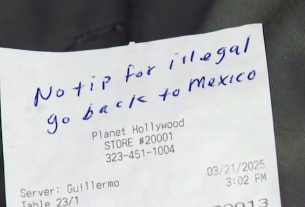 No tip for illegal
go back to mexico
Planet Hollywood
STORE #20001
323-451-1004
03/21/2025
Server: Guillermo 3:02 PM
Table 23/1
20013